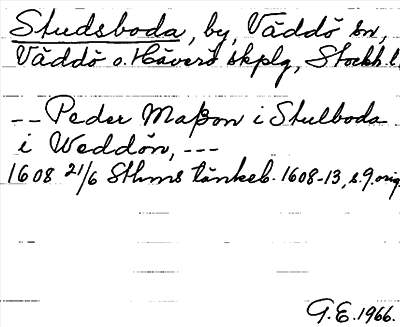 Studsboda, by, Väddö sn,
Väddö o. Häverö skplg, Stockh. l.
-- Peder Maßon i Stulboda
i Weddön, ---
1608 21/6 Sthms tänkeb. 1608-13, s. 9. orig.
G.E. 1966.